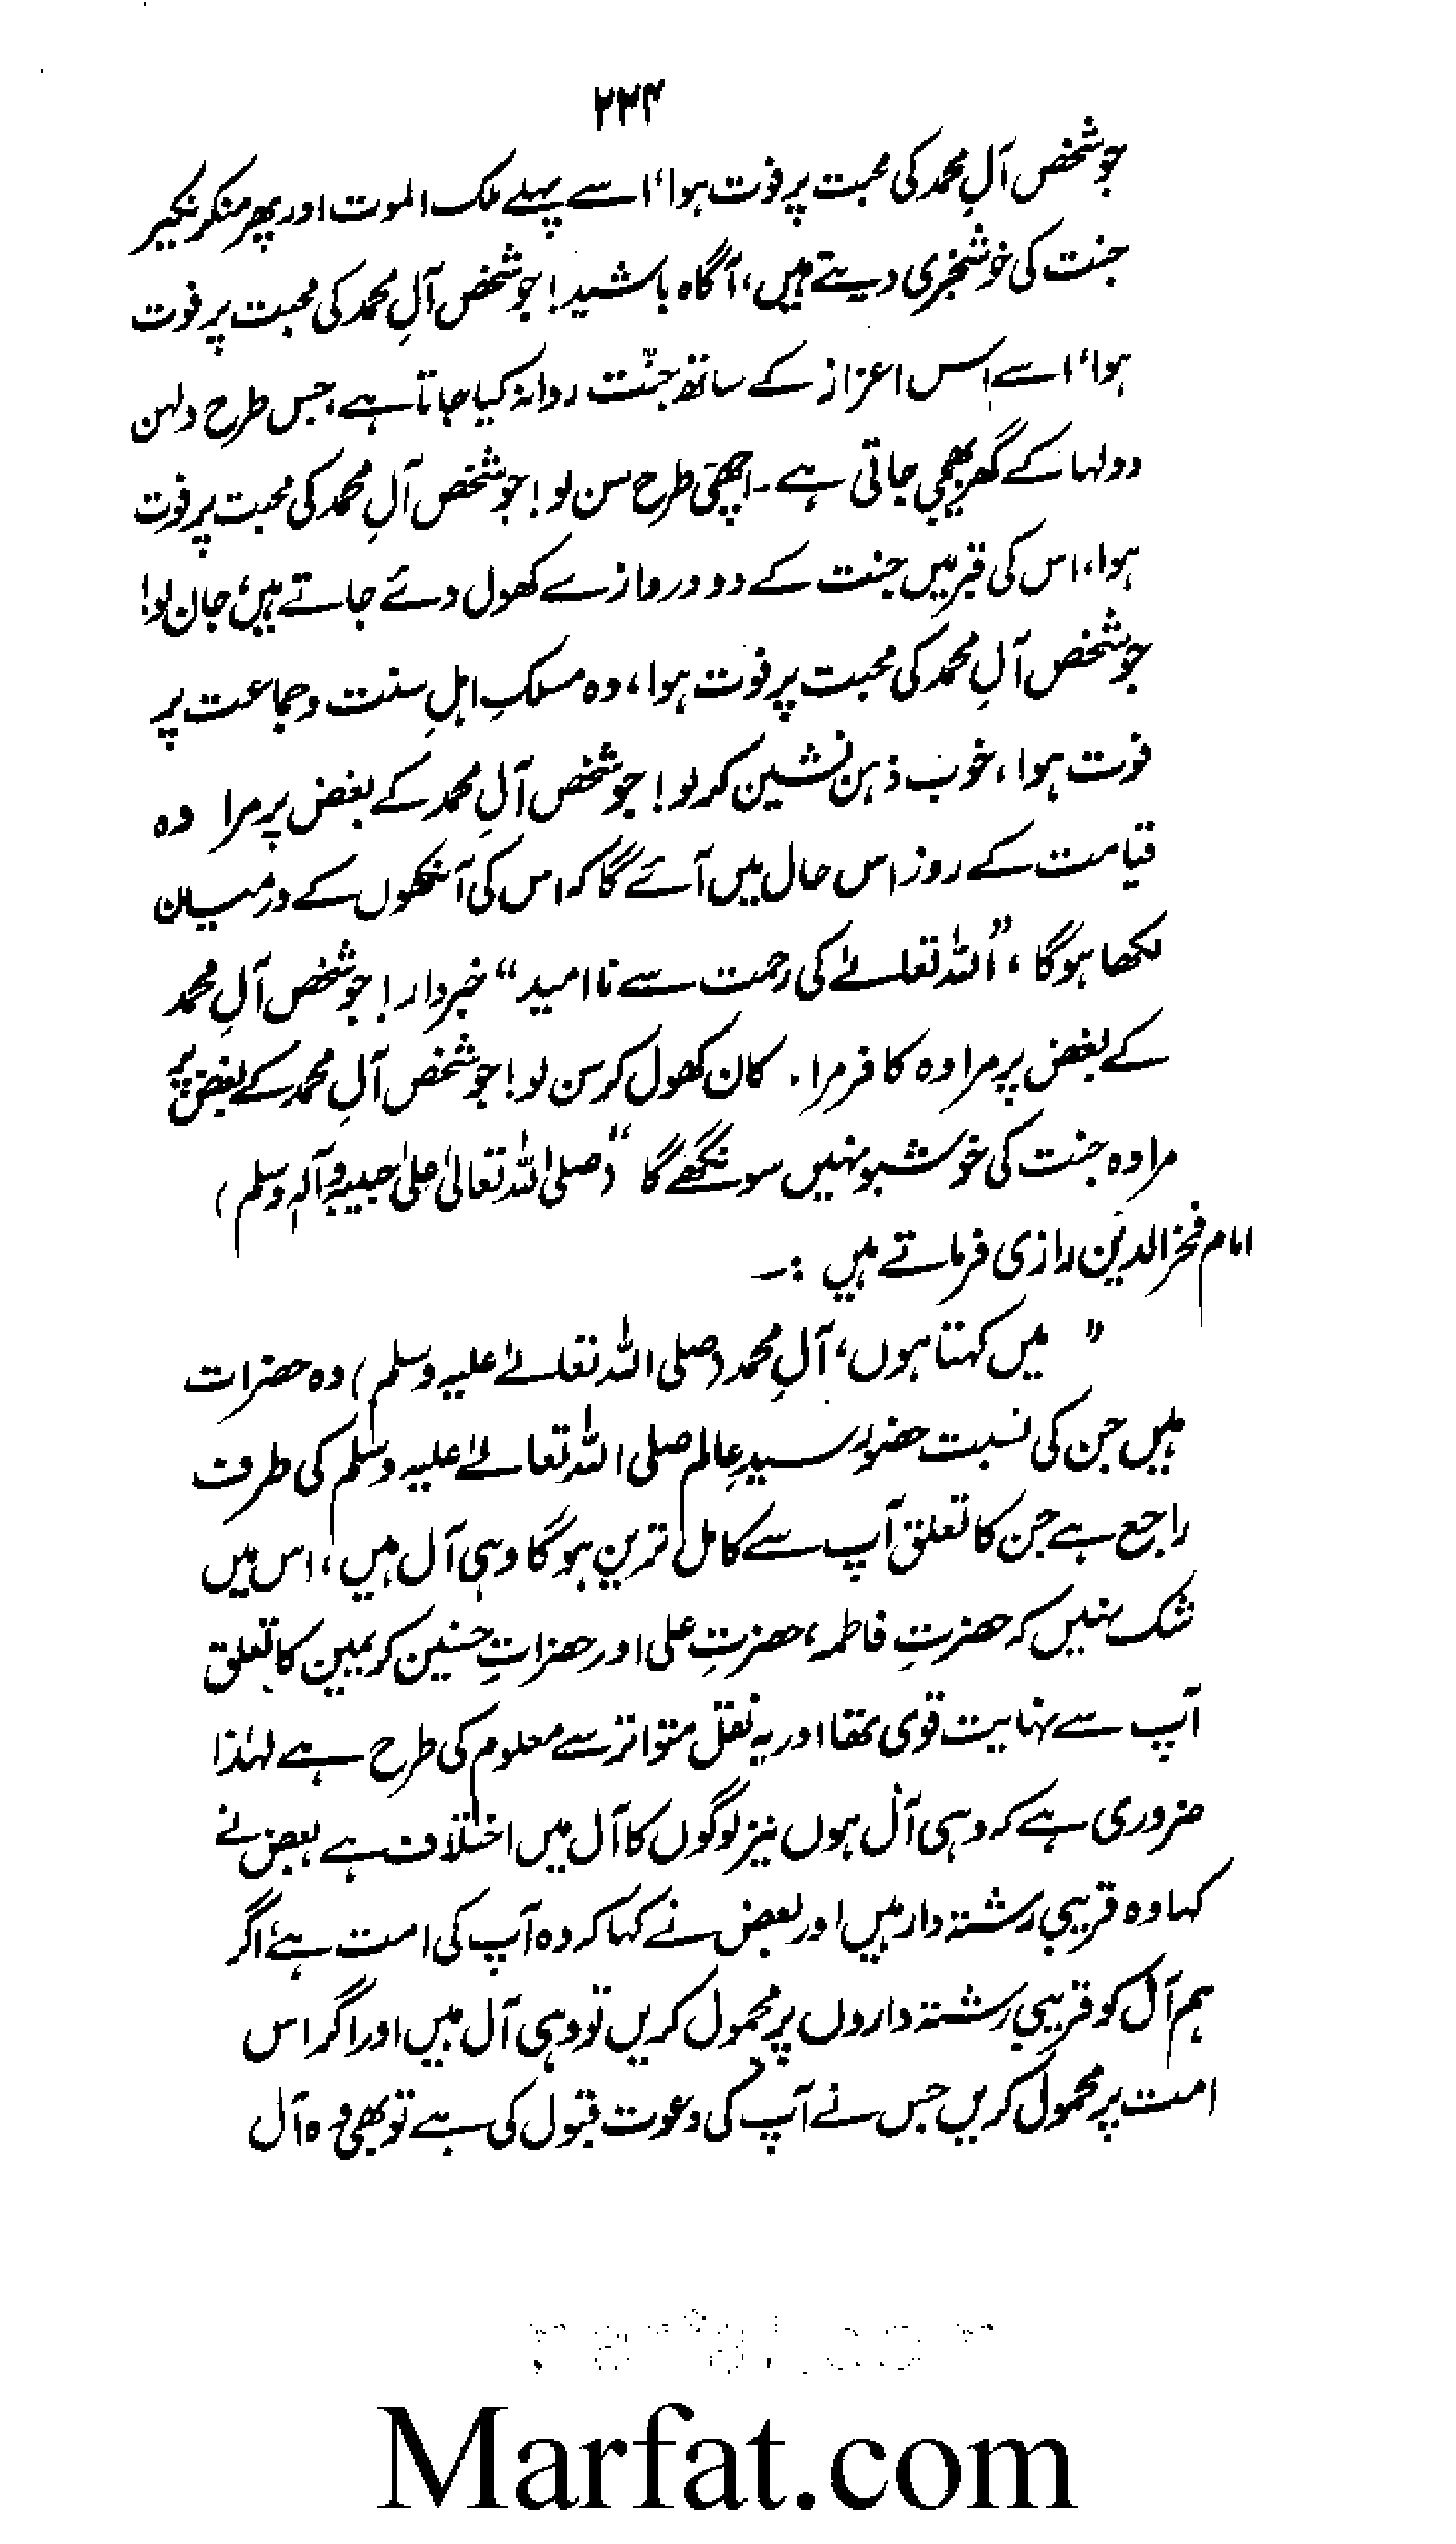 ۲۲۴
جو شخص آلِ محمد کی محبت پر فوت ہوا، اسے پہلے ملک الموت اور پھر منکر نکیر
جنت کی خوشخبری دیتے ہیں، آگاہ باشید! جو شخص آلِ محمد کی محبت پر فوت
ہوا، اسے اس اعزاز کے ساتھ جنّت روانہ کیا جاتا ہے، جس طرح دلہن
دولہا کے گھر بھیجی جاتی ہے۔ اچھی طرح سن لو! جو شخص آلِ محمد کی محبت پر فوت
ہوا، اس کی قبر میں جنت کے دو دروازے کھول دئے جاتے ہیں، جان لو!
جو شخص آلِ محمد کی محبت پر فوت ہوا، وہ مسلکِ اہلِ سنت وجماعت پر
فوت ہوا، خوب ذہن نشین کر لو! جو شخص آلِ محمد کے بغض پر مرا وہ
قیامت کے روز اس حال میں آئے گا کہ اس کی آنکھوں کے درمیان
لکھا ہوگا، "اللہ تعالےٰ کی رحمت سے ناامید" خبردار! جو شخص آلِ محمد
کے بغض پر مرا وہ کافر مرا۔ کان کھول کر سن لو! جو شخص آلِ محمد کے بغض پر
مرا وہ جنت کی خوشبو نہیں سونگھے گا" (صلی اللہ تعالیٰ علیٰ حبیبہٖ وآلہٖ وسلم)
امام فخر الدین رازی فرماتے ہیں :۔
" میں کہتا ہوں، آلِ محمد (صلی اللہ تعالےٰ علیہ وسلم) وہ حضرات
ہیں جن کی نسبت حضور سیدِ عالم صلی اللہ تعالےٰ علیہ وسلم کی طرف
راجع ہے جن کا تعلق آپ سے کامل ترین ہوگا وہی آل ہیں، اس میں
شک نہیں کہ حضرتِ فاطمہ، حضرتِ علی اور حضراتِ حسنین کریمین کا تعلق
آپ سے نہایت قوی تھا اور یہ نقل متواتر سے معلوم کی طرح ہے لہٰذا
ضروری ہے کہ وہی آل ہوں نیز لوگوں کا آل میں اختلاف ہے بعض نے
کہا وہ قریبی رشتہ دار ہیں اور بعض نے کہا کہ وہ آپ کی امت ہے، اگر
ہم آل کو قریبی رشتہ داروں پر محمول کریں تو وہی آل ہیں اور اگر اس
امت پر محمول کریں جس نے آپ کی دعوت قبول کی ہے تو بھی وہ آل
Marfat.com